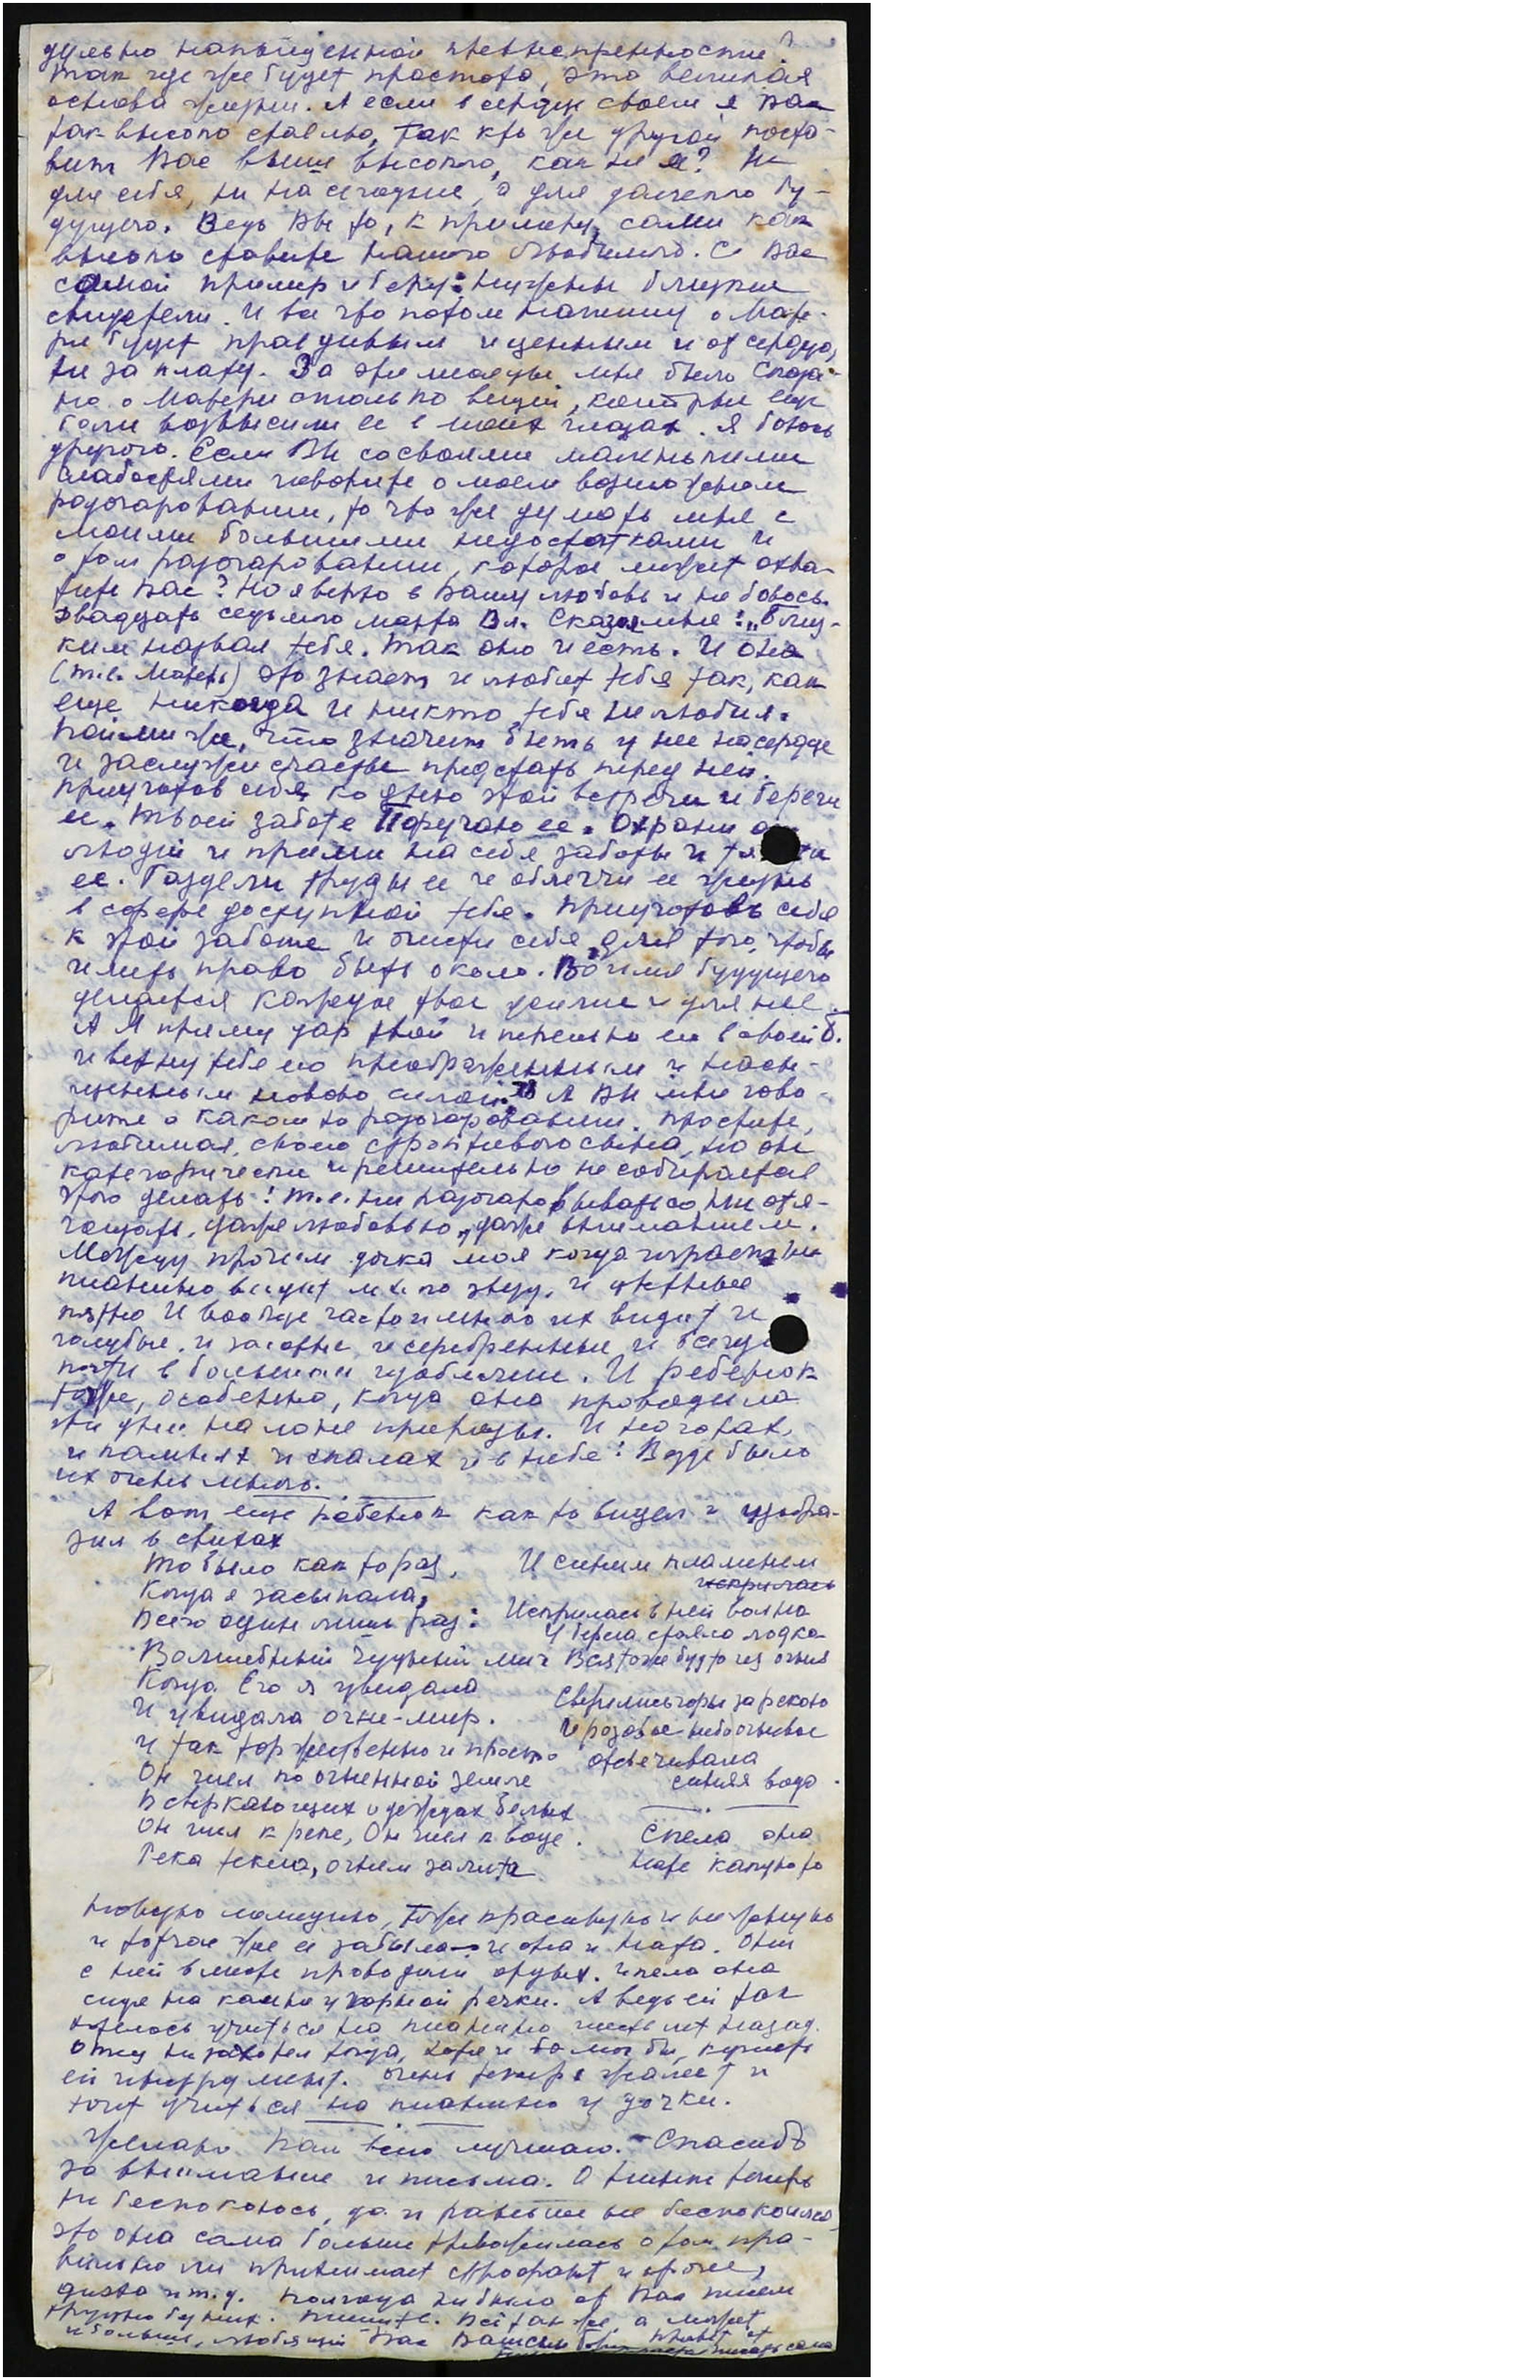 дульно напыщенной превыспренности?
Так где же будет простота, это великая
основа жизни. А если в сердце своем я Вас
так высоко ставлю, так кто же другой поста-
вит Вас выше высокого, как не я? Не
для себя, ни на сегодня, а для далекого бу-
дущего. Ведь Вы то, к примеру, сами как
высоко ставите нашего Любимого. С Вас
самой пример и беру: нужны близкие
свидетели. И все что потом напишу о Мате-
ри будет правдивым и ценным и от сердца,
не за плату. За эти месяцы мне было сказа-
но о Матери столько вещей, которые еще
более возвысили ее в моих глазах. Я боюсь
другого. Если Вы со своими маленькими
слабостями говорите о моем возможном
разочаровании, то что же думать мне с
моими большими недостатками и
о том разочаровании, которое может охва-
тить Вас? Но я верю в Вашу любовь и не боюсь.
Двадцать седьмого марта Вл. Сказал мне: „Близ-
ким назвал тебя. Так оно и есть. И она
(т.е. Матерь) это знает и любит тебя так, как
еще никогда и никто тебя не любил.
Пойми же, что значит быть у нее на сердце
и заслужи счастье предстать перед ней.
Приуготовь себя ко дню этой встречи и береги
ее. Твоей заботе Поручаю ее. Охрани от
людей и прими на себя заботы и
ее. Раздели труды ее и облегчи ее жизнь
в сфере доступной тебе. Приуготовь себя
к этой заботе и очисти себя для того, чтобы
иметь право быть около. Во имя будущего
делается каждое твое усилие и для нее.
А Я приму дар твой и переплавлю его в своей Б.
и верну тебе его преображенным и насы-
щенным новою силой." А Вы мне гово-
рите о каком то разочаровании. Простите,
любимая, своего строптивого сына, но он
категорически и решительно не собирается
этого делать! т.е. ни разочаровываться, ни отя-
гощать, даже любовью, даже вниманием.
Между прочим дочка моя когда играет на
пианино видит м.к. по звезду, и цветные
пятно И вообще часто и много их видит и
голубые, и золотые, и серебренные, и всегда
почти в большом изобилии. И ребенок
тоже, особенно, когда она проводила
эти дни на лоне природы. И на горах,
и камнях и скалах и в небе! Везде было
их очень много.
А вот еще ребенок как то видел и изобра-
зил в стихах
То было как то раз,
Когда я засыпала,
Всего один лишь раз:
Волшебный чудный миг
Когда Его я увидала
И увидала огне-мир.
И так торжественно и просто
Он шел по огненной земле
В сверкающих одеждах белых
Он шел к реке, Он шел к воде.
Река текла, огнем залита
И синим пламенем
искрилась
Искрилась в ней волна
У берега стояла лодка
Вся тоже будто из огня
Сверкались горы за рекою
И розовое небо огневое
отсвечивала
синяя вода.
Спела она
нате какую то
новую мелодию, тоже красивую и нежную
и тотчас же ее забыла и она и Ната. Они
с ней вместе проводили отдых. И пела она
сидя на камне у горной речки. А ведь ей так
хотелось учиться на пианино шесть лет назад.
Отец не захотел тогда, хотя и бы мог бы, купить
ей инструмент. Очень теперь жалеет и
хочет учиться на пианино у дочки.
Желаю Вам всего лучшего. Спасибо
за внимание и письма. О Нине теперь
не беспокоюсь, да и раньше не беспокоился
это она сама больше тревожилась о том, пра-
вильно ли принимает строфант и прочее,
дигто и т.д. Полгода не было от Вас писем
трудно без них. Пишите. Всё так же, а может
и больше, любящий Вас Ваш сын Привет от
писать сама